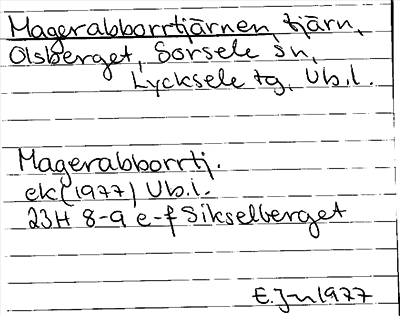 Magerabborrtjärnen, tjärn,
Olsberget, Sorsele sn,
Lycksele tg, Vb.l.
Magerabborrtj.
ek (1977) Vb.l.
23H 8-9 e-f Sikselberget
E. Jn 1977